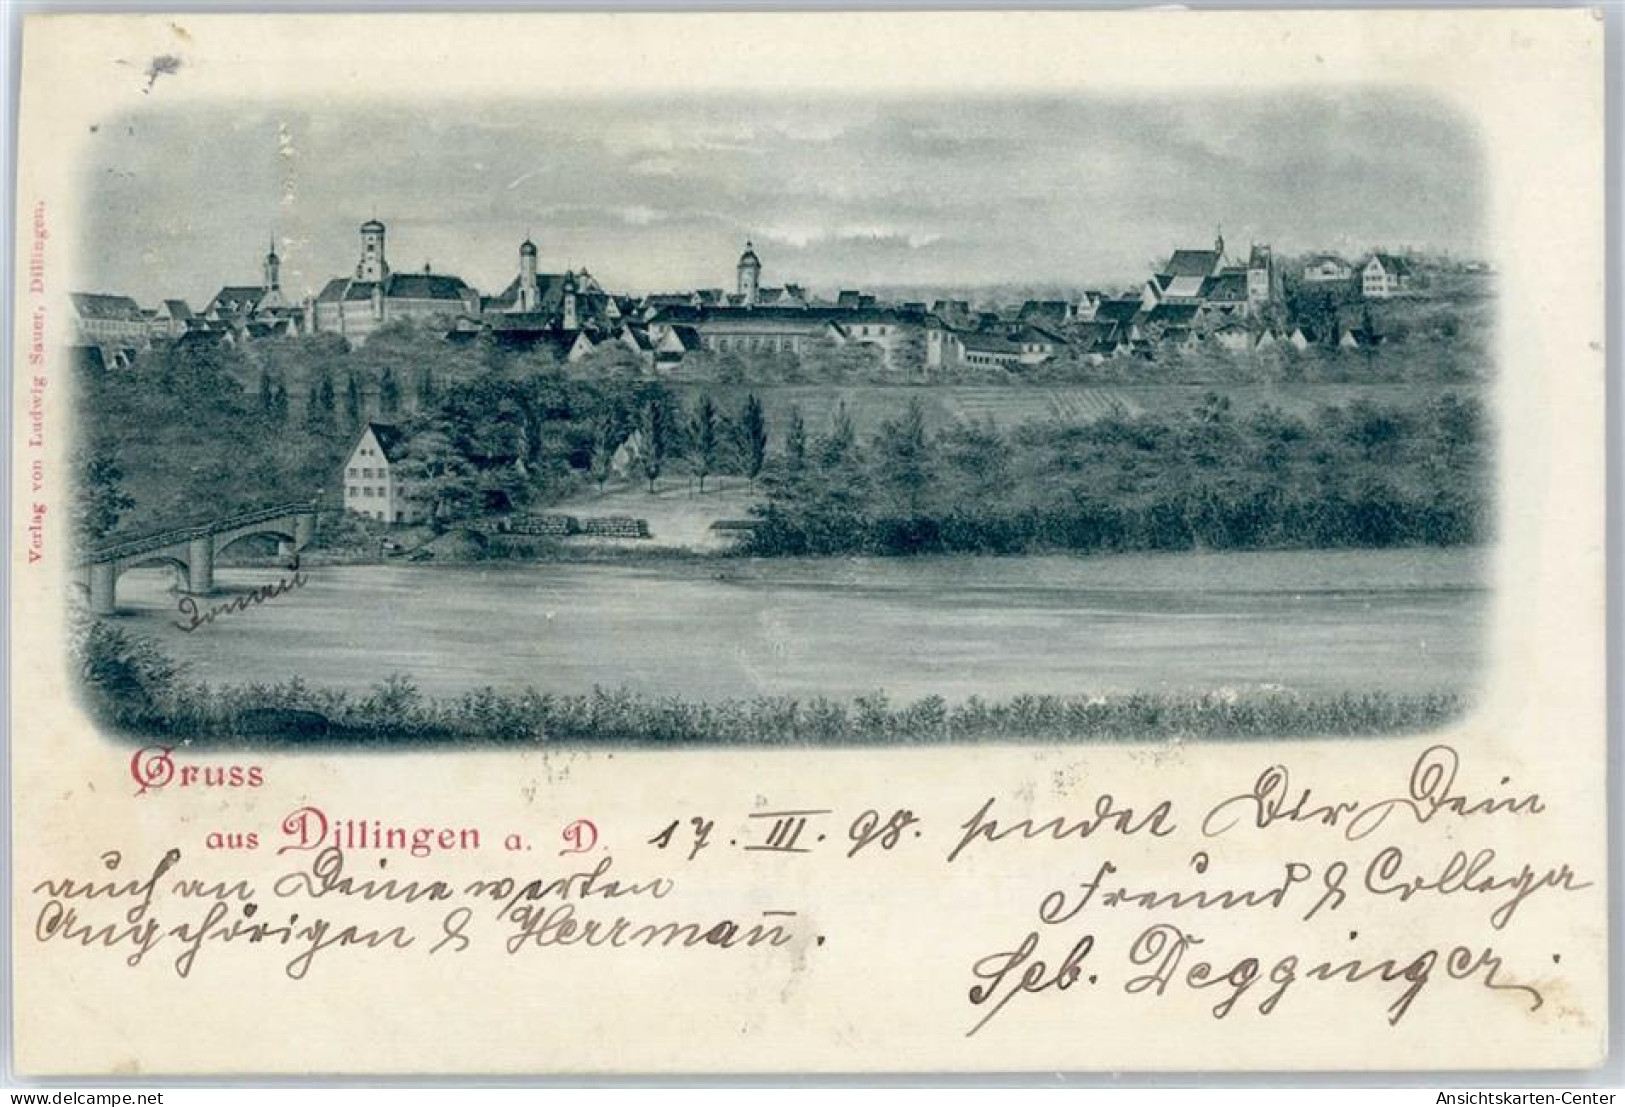 Verlag von Ludwig Sauer, Dillingen.
Donau
Gruss
aus Dillingen a. D.
17. III. 98. sendet Dir Dein
Freund & Collega
Seb. Degginger.
auch an Deine werten
Angehörigen & Herrmañ.
www.delcampe.net
Ansichtskarten-Center